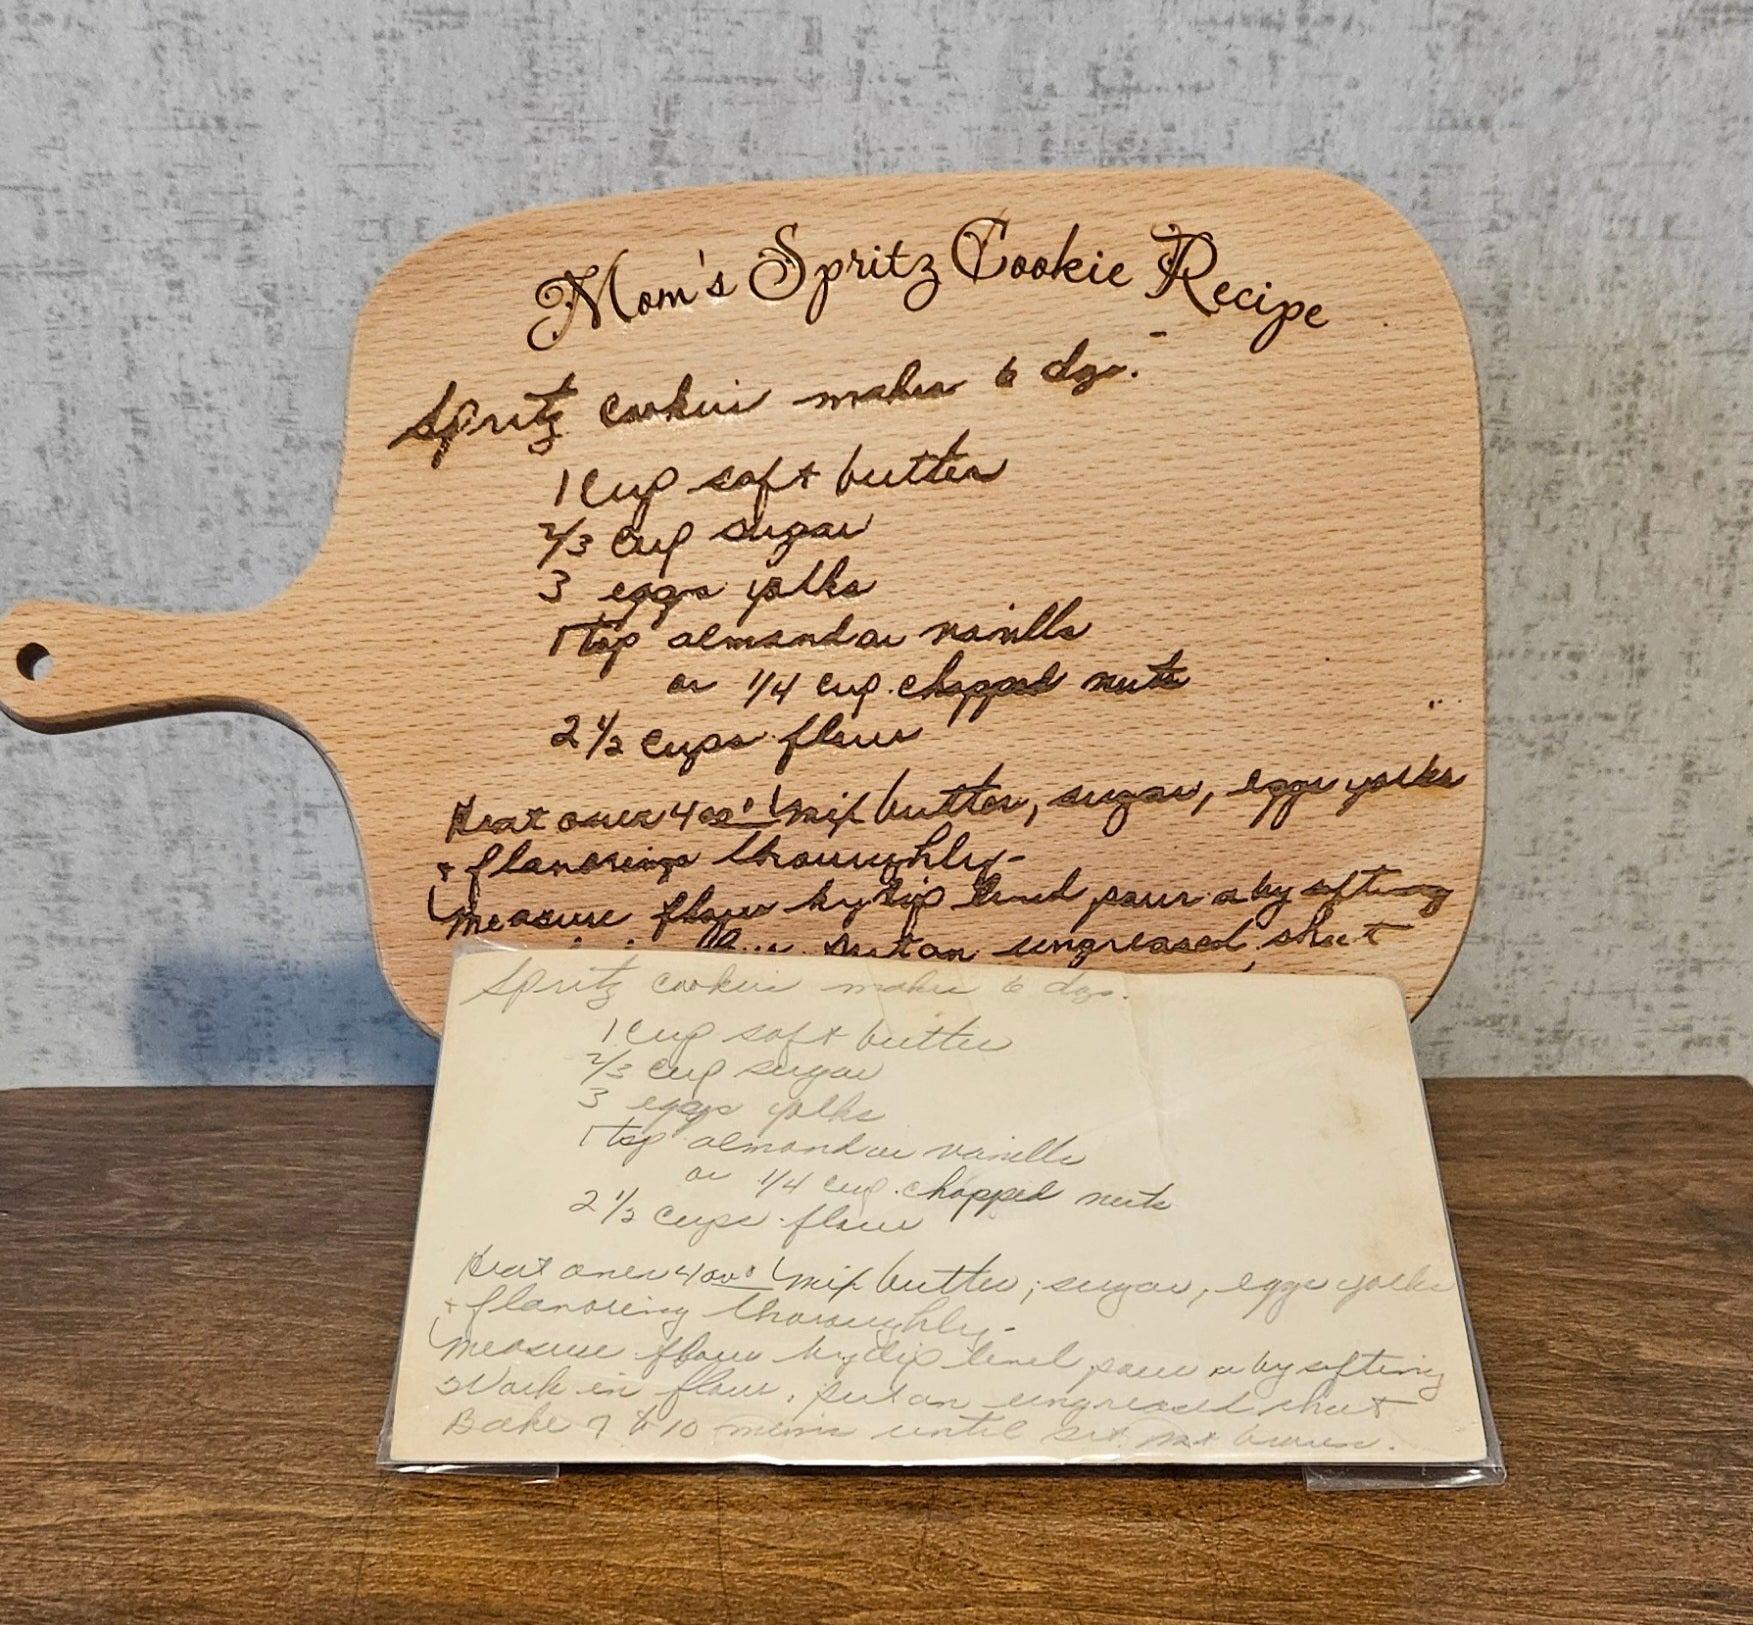 Mom's Spritz Cookie Recipe
Spritz cookies makes 6 dzs.
1 Cup soft butter
2/3 Cup sugar
3 eggs yolks
1 tsp almond or vanilla
or 1/4 cup chopped nuts
2 1/2 Cups flour
Heat oven 400° Mix butter, sugar, eggs yolks
+ flavorings thoroughly-
Measure flour by dip level pour or by sifting
put on ungreased sheet
Spritz cookies makes 6 dzs.
1 Cup soft butter
2/3 Cup sugar
3 eggs yolks
1 tsp almond or vanilla
or 1/4 cup chopped nuts
2 1/2 Cups flour
Heat oven 400° Mix butter, sugar, eggs yolks
+ flavoring thoroughly-
Measure flour by dip level pour or by sifting
Work in flour. put on ungreased sheet
Bake 7 to 10 mins until set not brown.